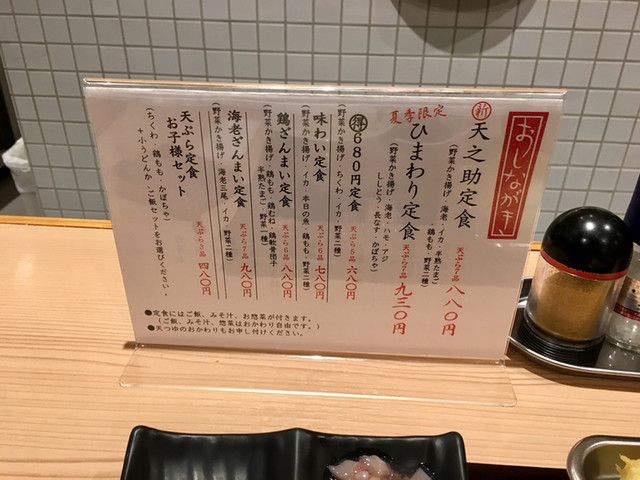 おしながき
新 天之助定食 天ぷら7品 八八〇円
(野菜かき揚げ・海老・イカ・半熟たまご
・鶏もも・野菜二種)
夏季限定
ひまわり定食 天ぷら7品 九三〇円
(野菜かき揚げ・海老・ハモ・アジ
ししとう・長なす・かぼちゃ)
得 680円定食 天ぷら5品 六八〇円
(野菜かき揚げ・ちくわ・イカ・鶏もも・野菜二種)
味わい定食 天ぷら6品 七八〇円
(野菜かき揚げ・イカ・本日の魚・鶏もも・野菜二種)
鶏ざんまい定食 天ぷら6品 八八〇円
(野菜かき揚げ・鶏もも・鶏むね・鶏軟骨団子
半熟たまご・野菜二種)
海老ざんまい定食 天ぷら7品 九八〇円
(野菜かき揚げ・海老三尾・イカ・野菜二種)
天ぷら定食
お子様セット 天ぷら3品 四八〇円
(ちくわ・鶏もも・かぼちゃ)
+小うどんか、ご飯セットをお選びください。
●定食にはご飯、みそ汁、お惣菜が付きます。
(ご飯、みそ汁、惣菜はおかわり自由です。)
●天つゆのおかわりもお申し付けください。